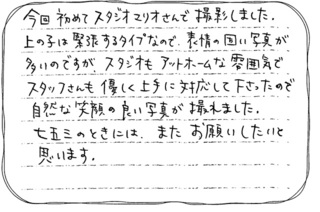 今回初めてスタジオマリオさんで撮影しました。
上の子は緊張するタイプなので、表情の固い写真が
多いのですが、スタジオもアットホームな雰囲気で
スタッフさんも優しく上手に対応して下さったので
自然な笑顔の良い写真が撮れました。
七五三のときには、またお願いしたいと
思います。